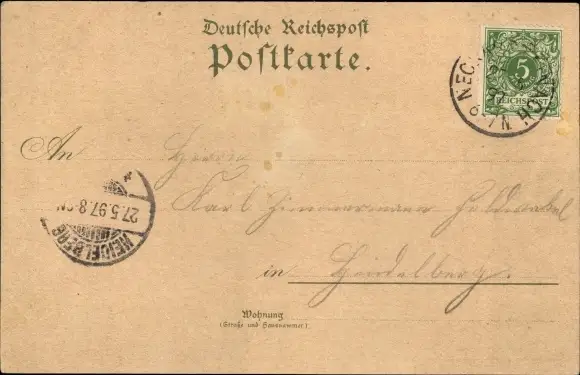 Deutsche Reichspost
Postkarte.
5
REICHSPOST
An Herrn
Karl Zimmermann
in Heidelberg.
HEIDELBERG
27.5.97.8-9N
Wohnung
(Straße und Hausnummer)